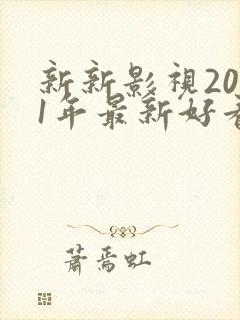 新新影視20
1年最新好看
萧焉虹